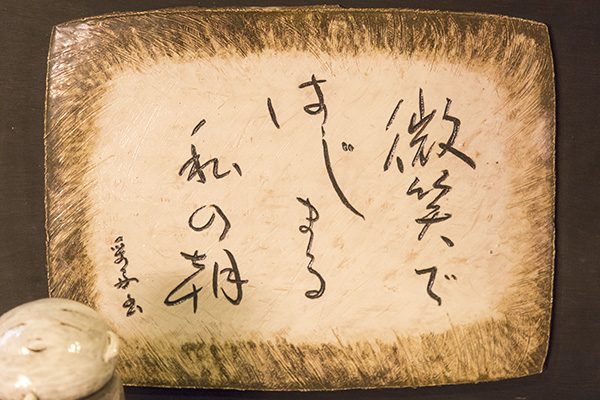 微笑で
はじまる
私の朝